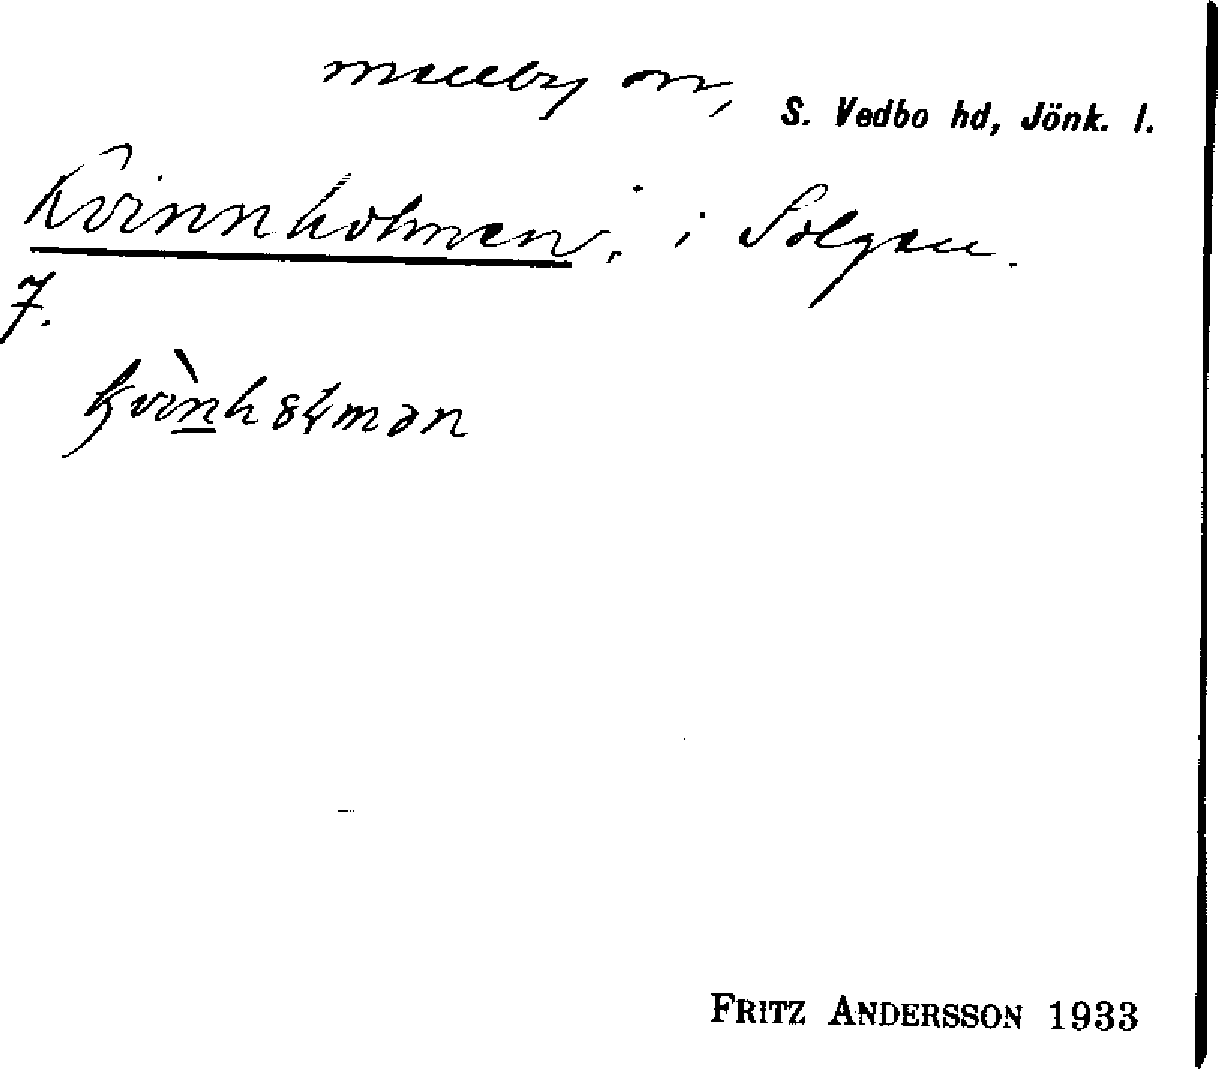 Mellby sn, S. Vedbo hd, Jönk. l.
Kvinnholmen, i Solgen.
7.
FRITZ ANDERSSON 1933